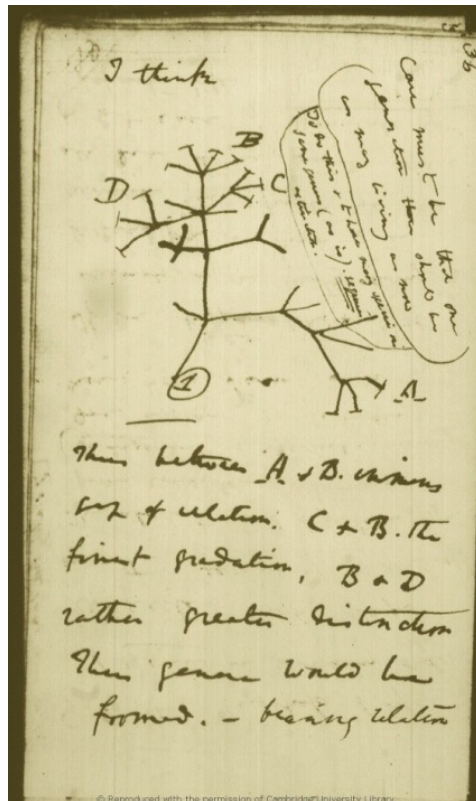 36
I think
Case must be that one
generation then should be
as many living as now
To do this & to have many species in
same genus (as is). requires
extinction.
B
C
D
1
A
Thus between A & B. immens
gap of relation. C & B. the
finest gradation, B & D
rather greater distinction
Thus genera would be
formed. — bearing relation
© Reproduced with the permission of Cambridge University Library